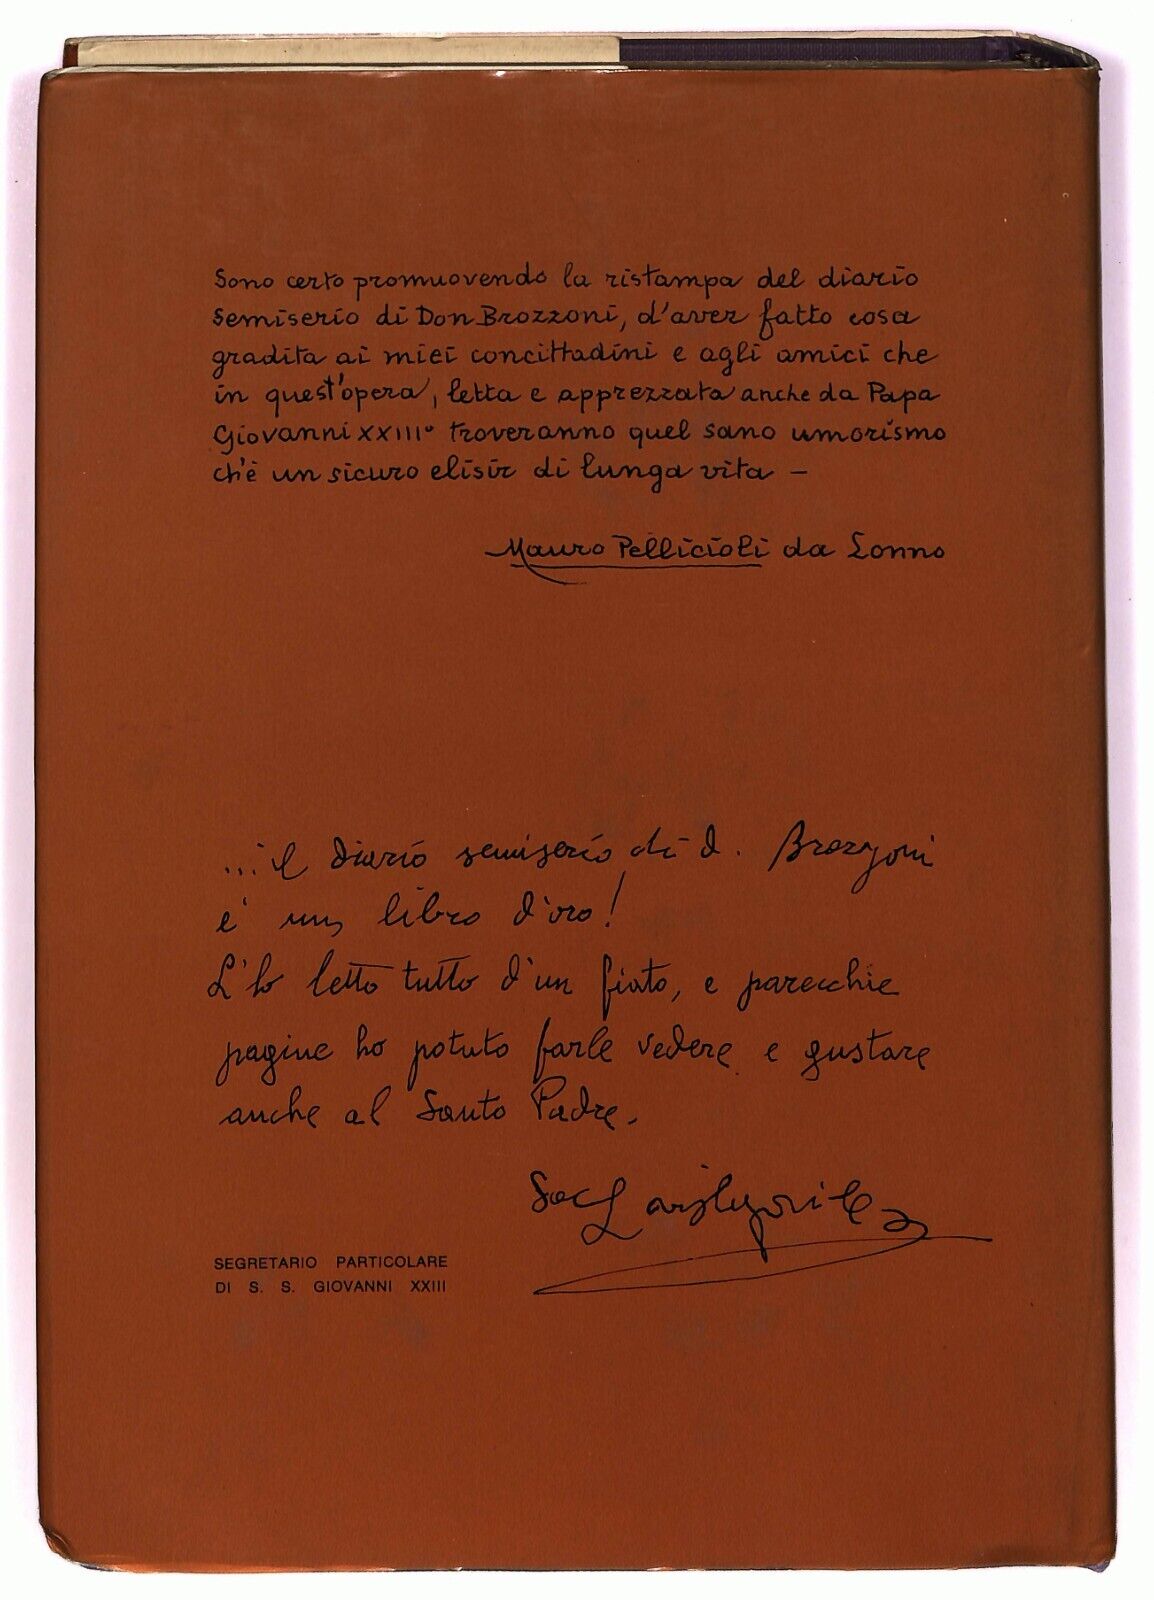 Sono certo promuovendo la ristampa del diario
semiserio di Don Brozzoni, d'aver fatto cosa
gradita ai miei concittadini e agli amici che
in quest'opera, letta e apprezzata anche da Papa
Giovanni XXIII° troveranno quel sano umorismo
ch'è un sicuro elisir di lunga vita —
Mauro Pellicioli da Lonno
...il diario semiserio di d. Brozzoni
è un libro d'oro!
L'ho letto tutto d'un fiato, e parecchie
pagine ho potuto farle vedere e gustare
anche al Santo Padre.
Sac
SEGRETARIO PARTICOLARE
DI S. S. GIOVANNI XXIII